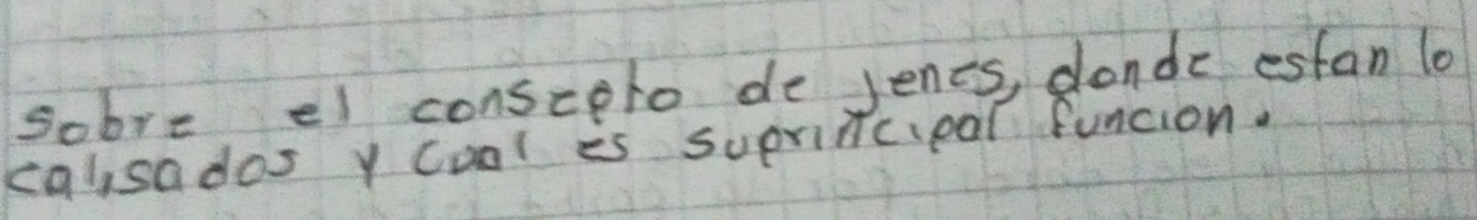 sobre el conscepto de jenes, donde estan lo
calisados y cual es suprintcipal funcion.